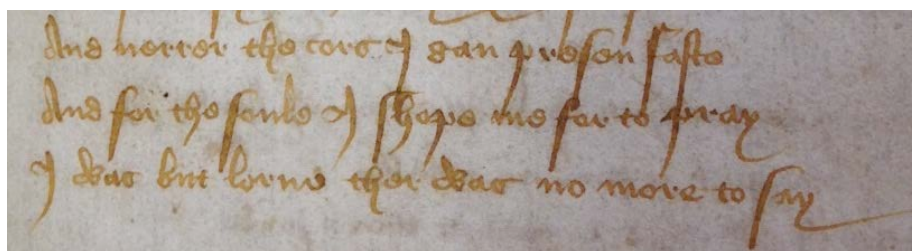 And nerrer the cors I gan presen faste
And for the soule I shope me for to pray
I was but lorne ther was no more to say